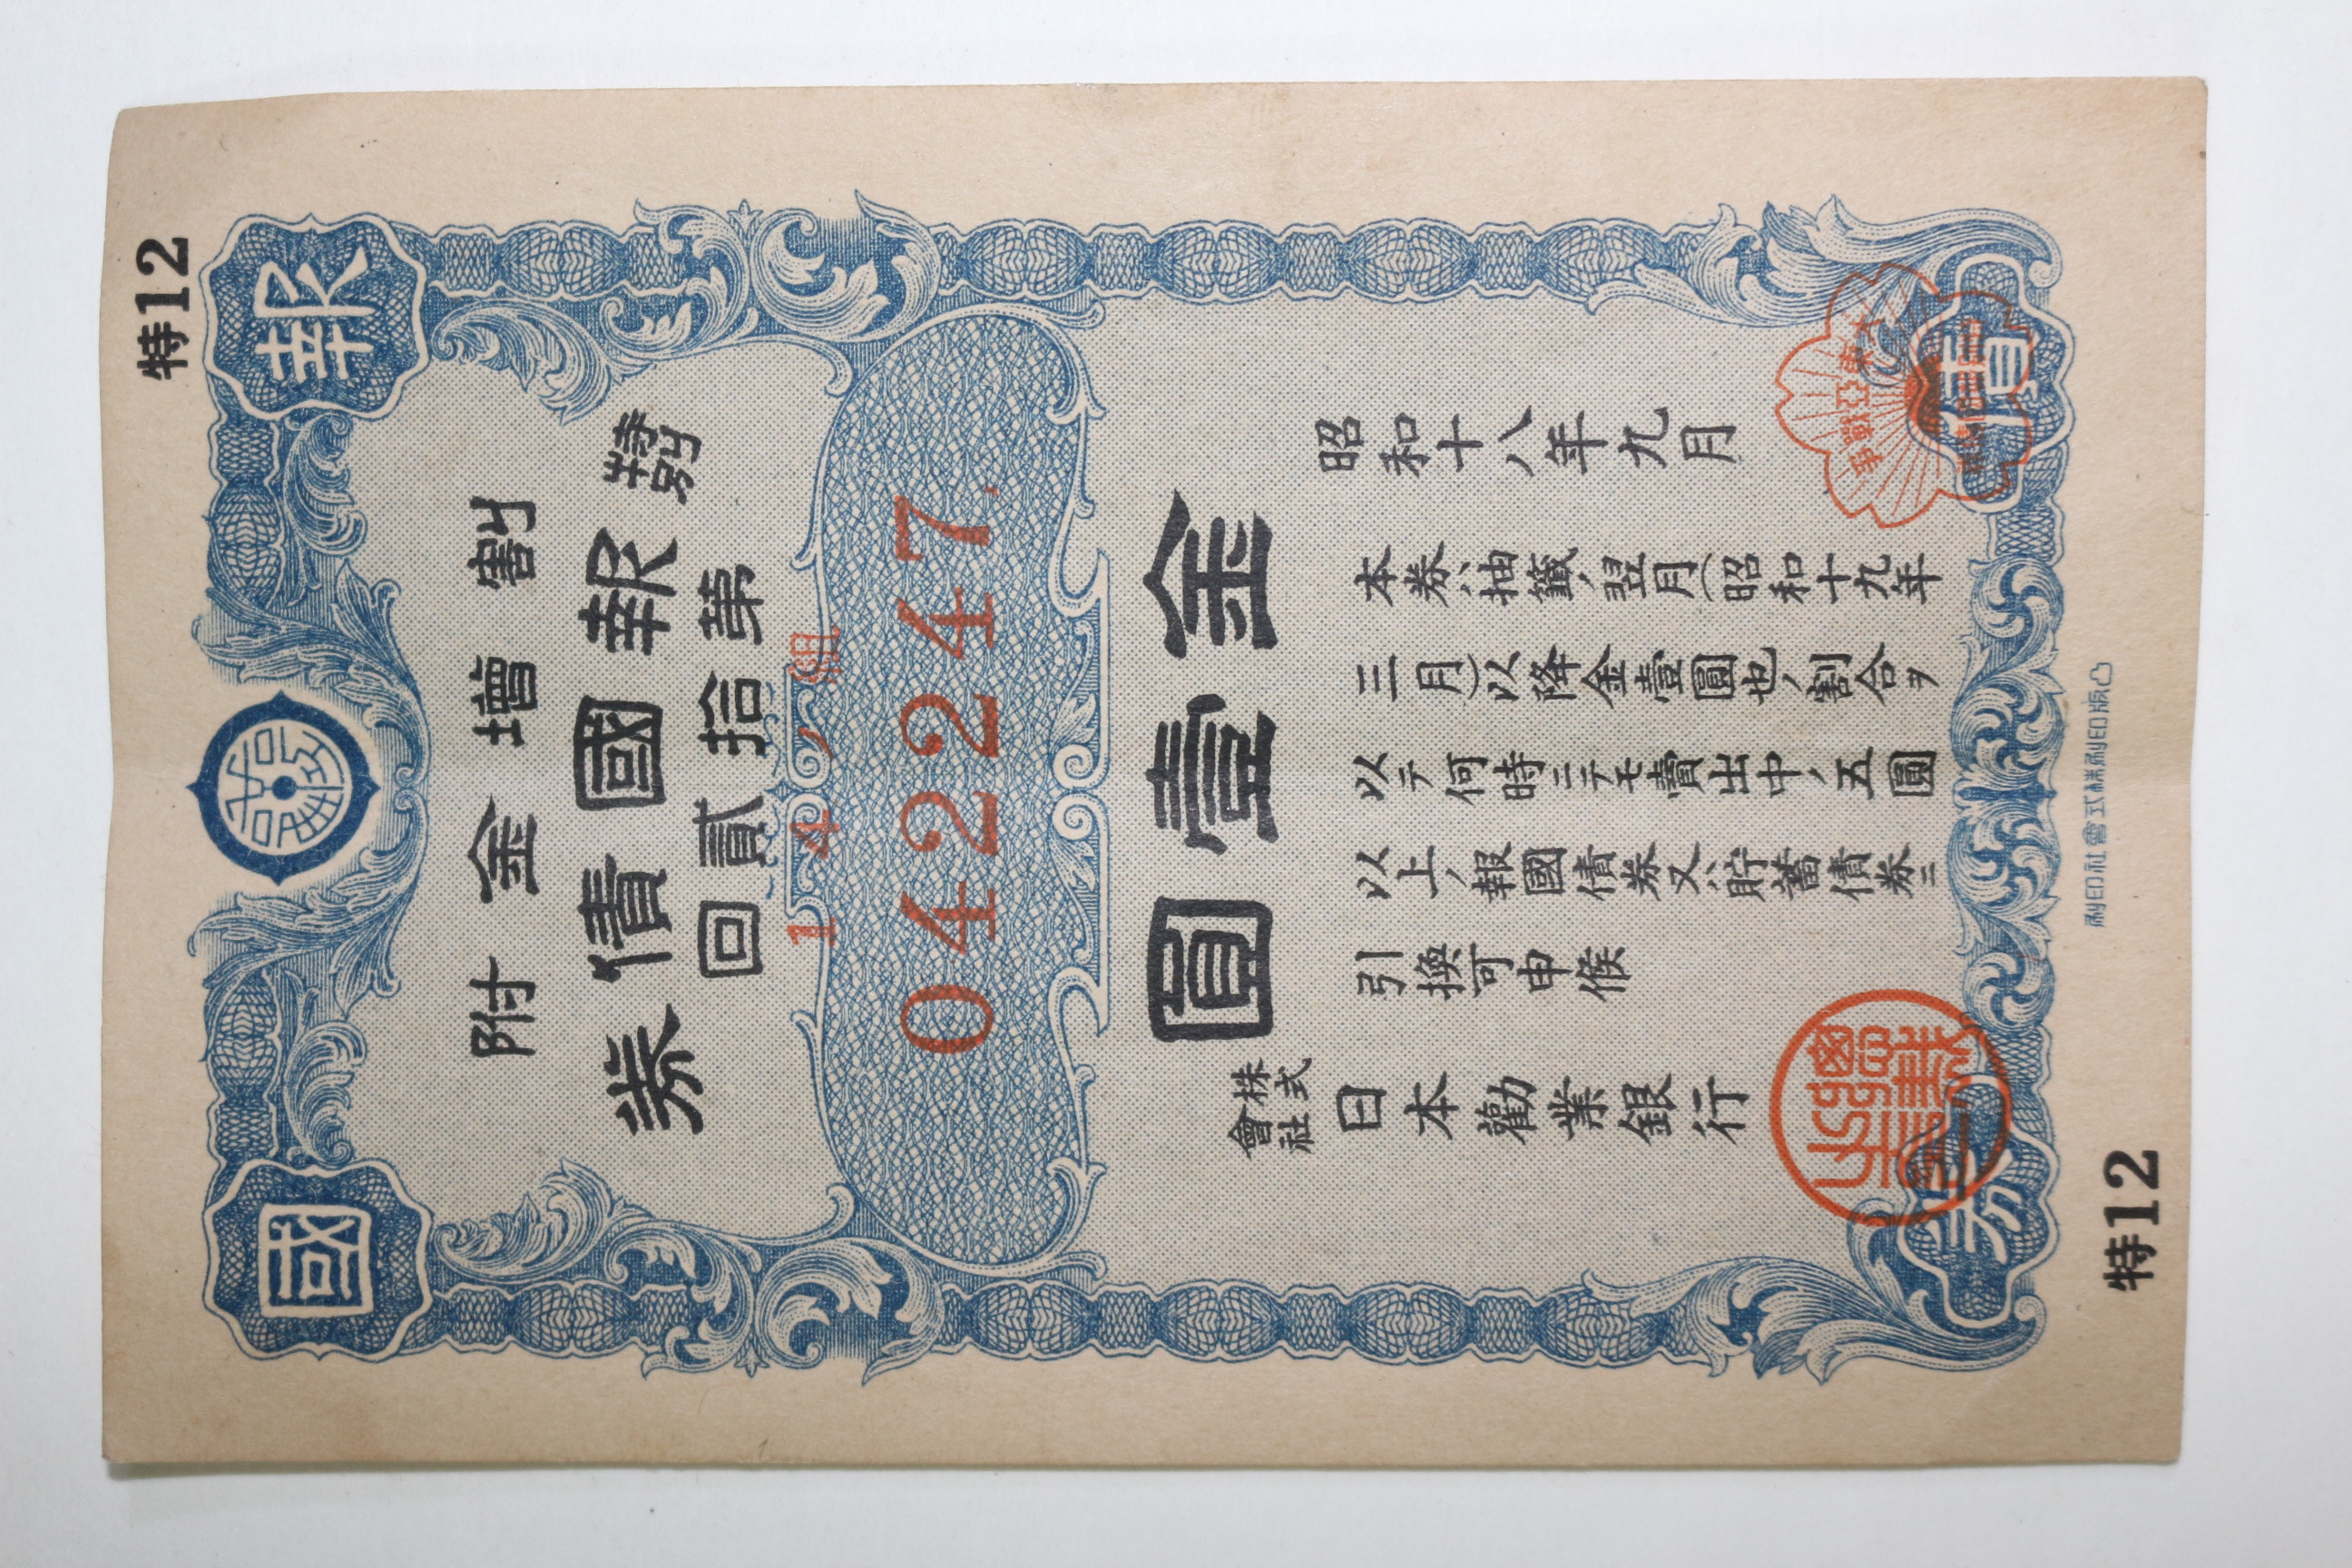 特12
報國
割增金附
特別報國債券
第拾貳回
14ノ組
042247
金壹圓
昭和十八年九月
本券ハ抽籤ノ翌月(昭和十九年
三月)以降金壹圓也ノ割合ヲ
以テ何時ニテモ賣出中ノ五圓
以上ノ報國債券又ハ貯蓄債券ニ
引換可申候
株式會社日本勸業銀行
大東亞戰爭
債券
凸版印刷株式會社印刷
特12